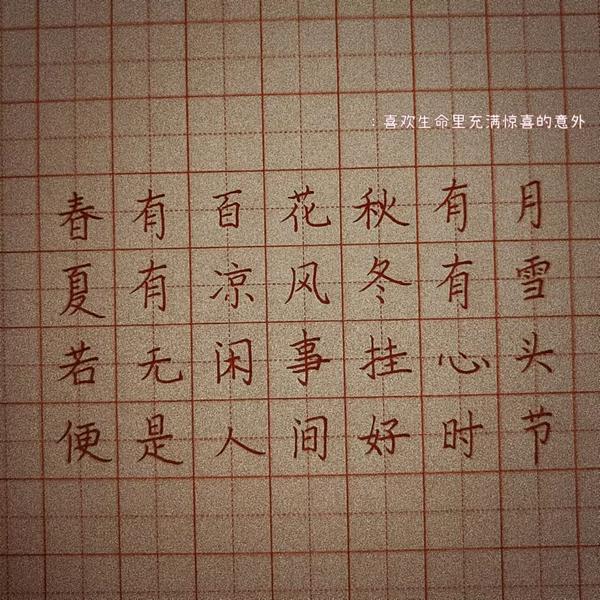 ：喜欢生命里充满惊喜的意外
春有百花秋有月
夏有凉风冬有雪
若无闲事挂心头
便是人间好时节